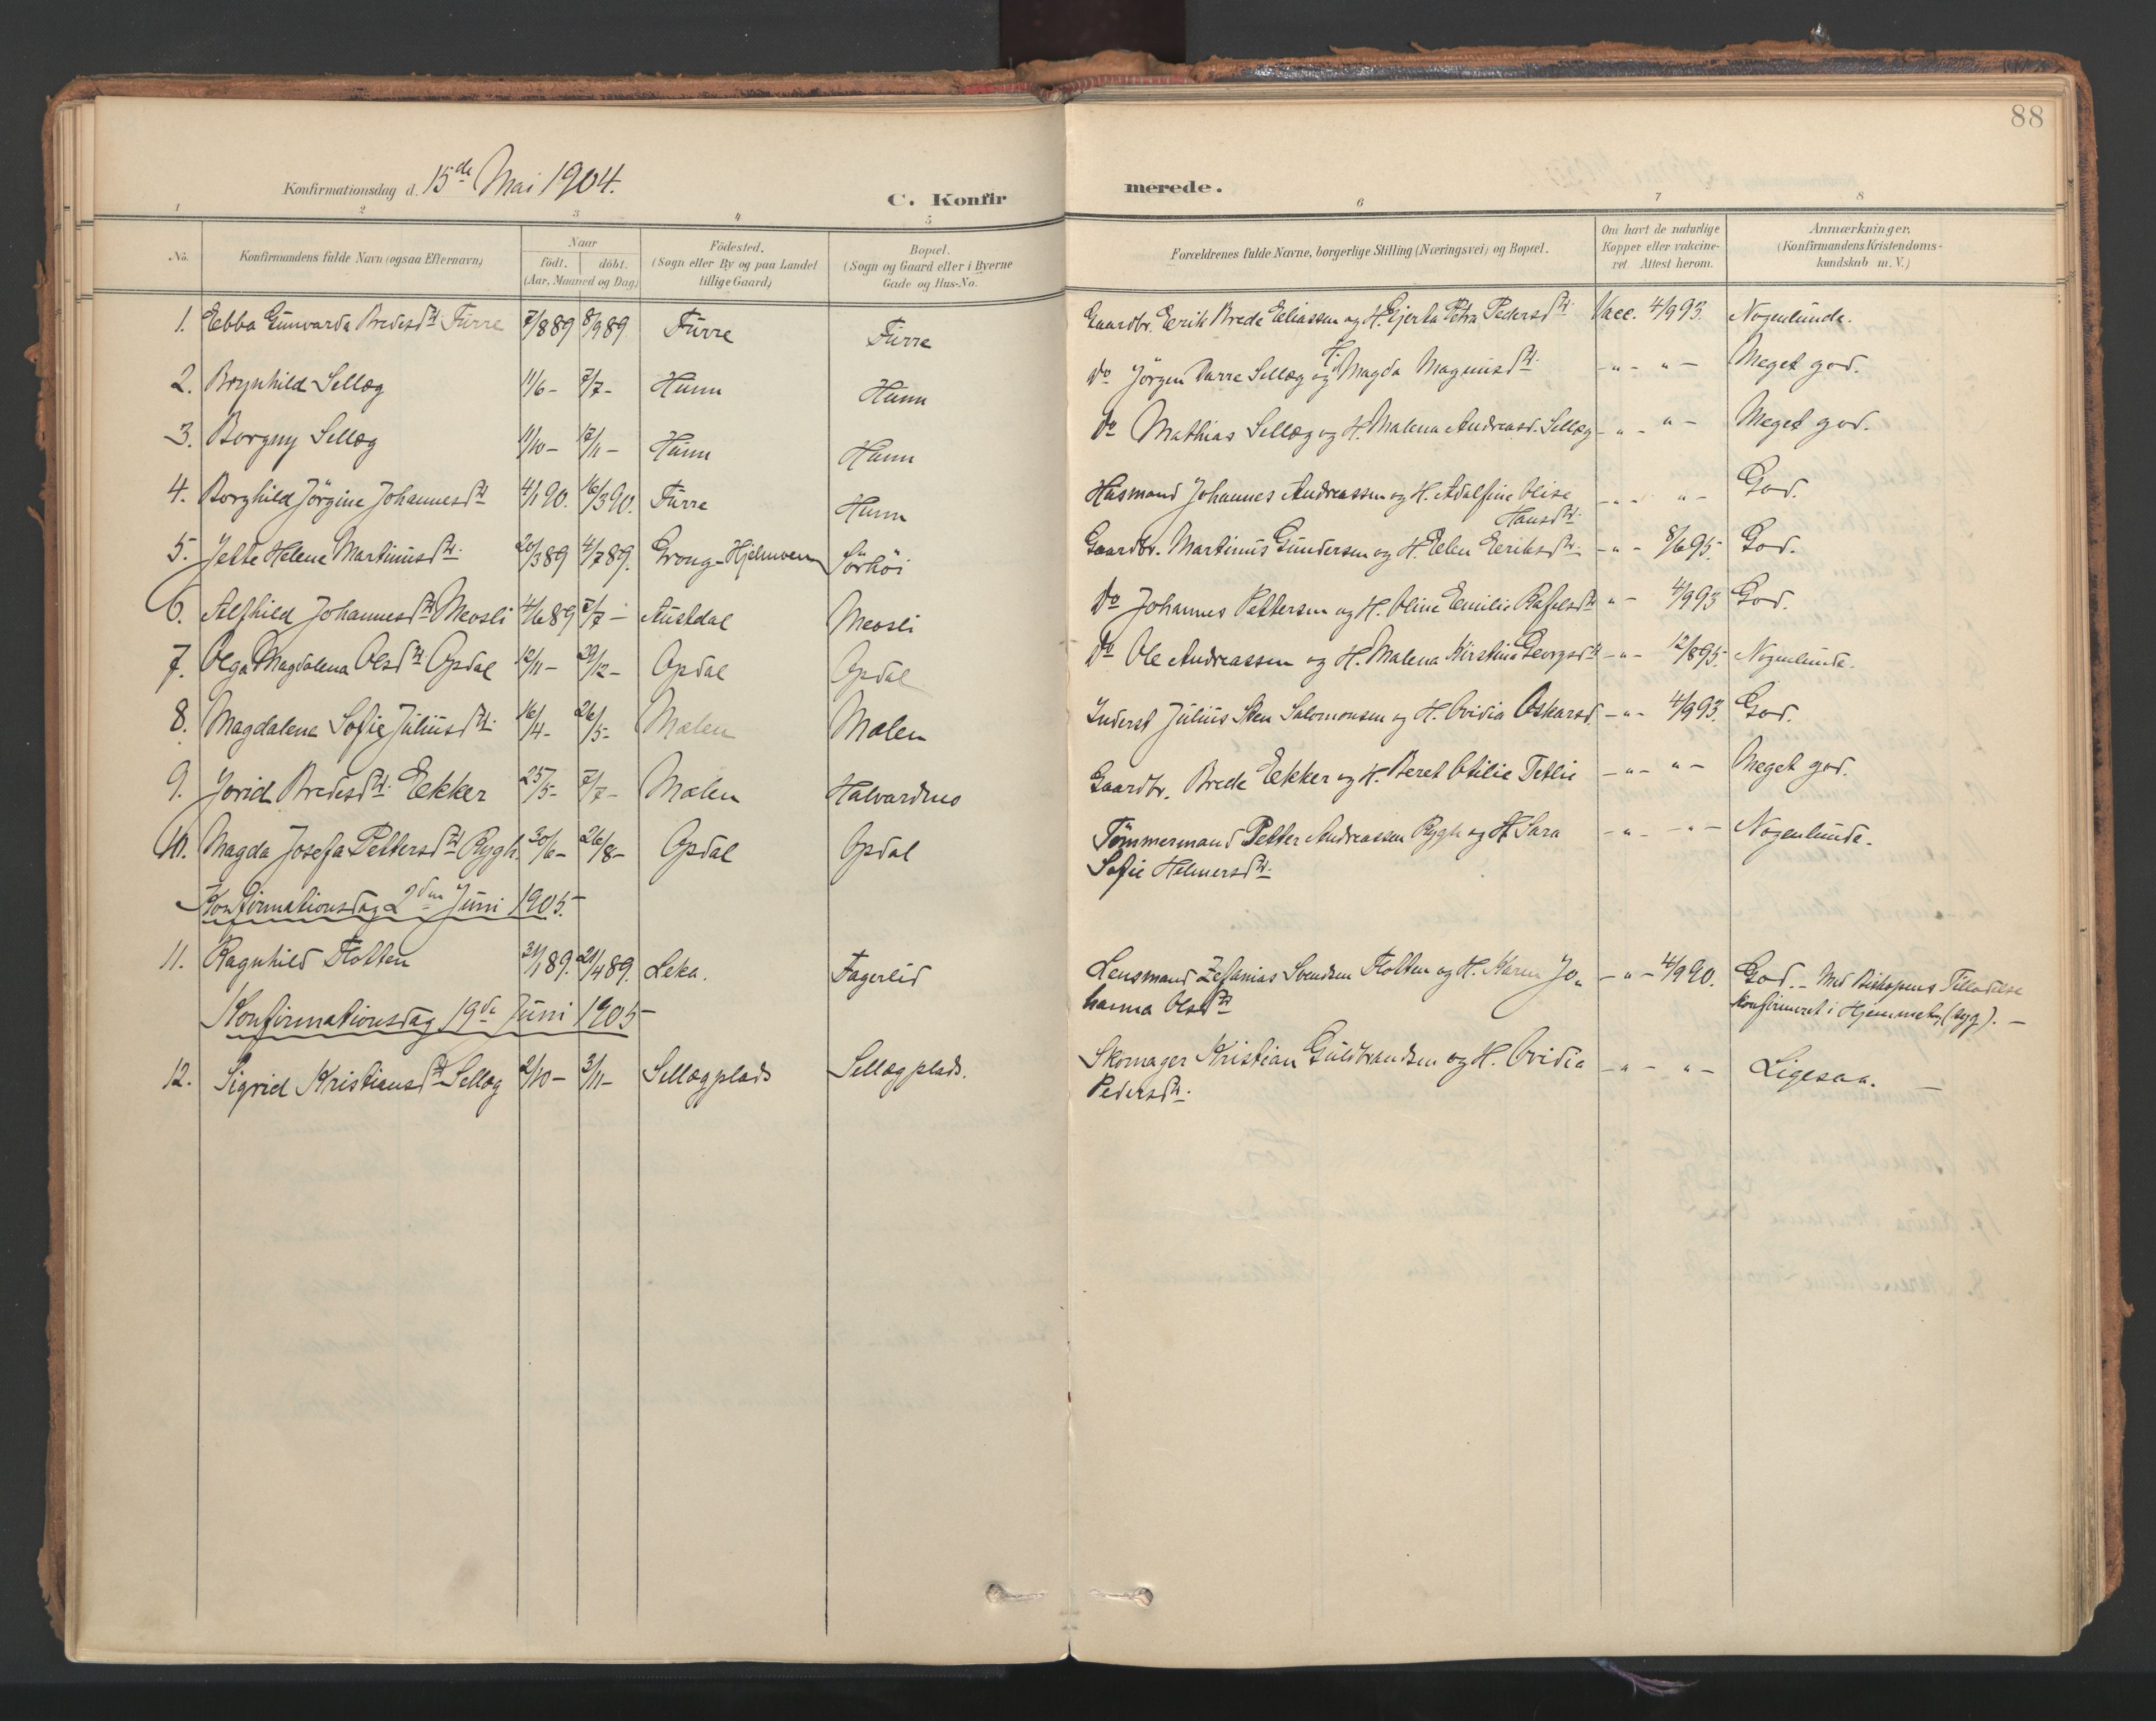 88
Konfirmationsdag d. 15de Mai 1904.
C. Konfirmerede.
1 2 3 4 5 6 7 8
No.
Konfirmandens fulde Navn (ogsaa Efternavn)
Naar
födt. döbt.
(Aar, Maaned og Dag)
Födested.
(Sogn eller By og paa Landet
tillige Gaard)
Bopæl.
(Sogn og Gaard eller i Byerne
Gade og Hus-No.
Forældrenes fulde Navne, borgerlige Stilling (Næringsvei) og Bopæl.
Om havt de naturlige
Kopper eller vakcine-
ret. Attest herom.
Anmærkninger.
(Konfirmandens Kristendoms-
kundskab m. V.)
1. Ebba Gunvarda Bredesdtr Furre 7/8 89 8/9 89. Furre Furre Gaardbr. Eerik Brede Eliassen og H. Gjerta Petra Pedersdtr. Vacc. 4/9 93. Nogenlunde.
2. Brynhild Sellæg 11/6 - 7/7 - Hunn Hunn Do Jörgen Darre Sellæg og H. Magda Magnusdtr. - " - " - Meget god.
3. Borgny Sellæg 11/10 - 17/11 - Hunn Hunn Do Mathias Sellæg og H. Malena Andreasd. Sellæg - " - " - Meget god.
4. Borghild Jörgine Johannesdtr 4/1 90. 16/3 90. Furre Hunn Husmand Johannes Andreassen og H. Adolfine Olise
Hansdtr. - " - " - God.
5. Jette Helene Martinusdtr. 20/3 89 4/7 89. Grong - Hjelmven Sörhöi Gaardbr. Martinus Gundersen og H. Elen Eeriksdtr. - " - 8/6 95. God.
6. Alfhild Johannesdtr Meosli 4/6 89 7/7 - Austdal Meosli Do Johannes Pettersen og H. Oline Emilie Rafelsdtr " - 4/9 93 God.
7. Olga Magdalena Olsdtr Opdal 12/11 - 29/12 - Opdal Opdal Do Ole Andreassen og H. Malena Kirstina Georgsdtr - " - 12/8 95. Nogenlunde.
8. Magdalena Sofie Juliusdtr. 16/4 - 26/5 - Mælen Mælen Inderst Julius Sten Salomonsen og H. Ovidia Oskarsd. - " - 4/9 93. God.
9. Jorid Bredesdtr. Eekker 25/5 - 7/7 - Mælen Halvardmo Gaardbr. Brede Eekker og H. Beret Otilie Tetlie - " - " - Meget god.
10. Magda Josefa Pettersdtr Rygh. 30/6 - 26/8 - Opdal Opdal Tömmermand Petter Andreassen Rygh og H. Sara
Sofie Helmersdtr. - " - " - Nogenlunde.
Konfirmationsdag 2den Juni 1905.
11. Ragnhild Holten 31/1 89. 21/4 89. Leka. Fagerlid Lensmand Zefanias Svendsen Holten og H. Karen Jo-
hanna Olsdtr - " - 4/9 90. God. - Med Biskopens Tilladelse
konfirmeret i Hjemmet, (syg). -
Konfirmationsdag 19de Juni 1905
12. Sigrid Kristiansdtr Sellæg 2/10 - 3/11 - Sellægplads Sellægplads. Skomager Kristian Guldbrandsen og H. Ovidia
Pedersdtr. - " - " - Ligesaa. -